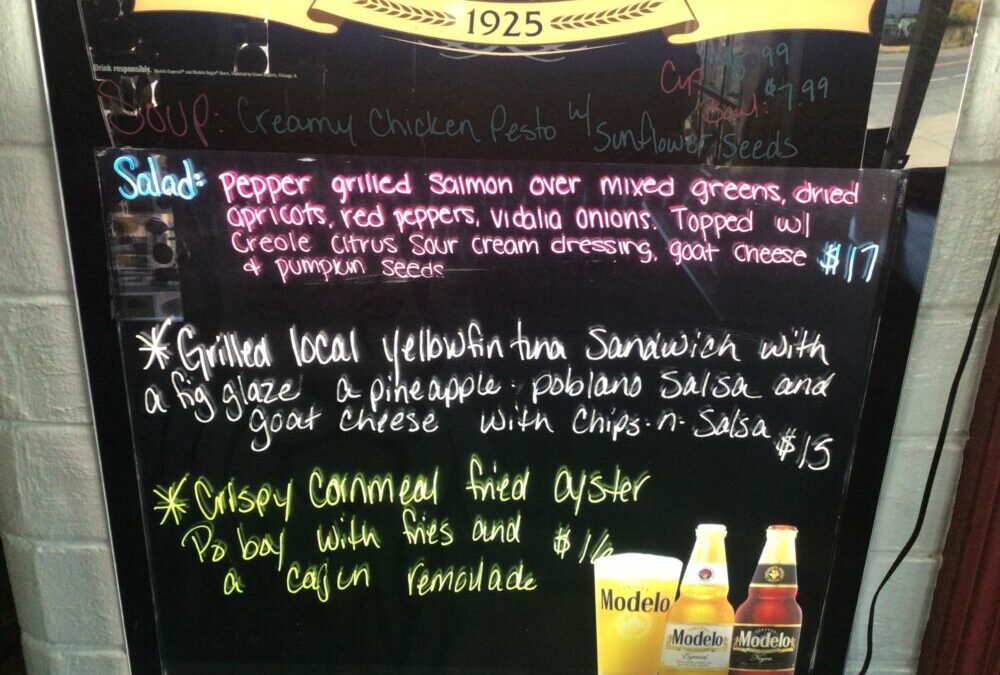 1925
Drink responsibly.
Cup $5.99
Bowl: $7.99
Soup: Creamy Chicken Pesto w/ Sunflower Seeds
Salad: Pepper grilled Salmon over mixed greens, dried
apricots, red peppers, vidalia onions. Topped w/
Creole Citrus Sour cream dressing, goat cheese $17
& pumpkin seeds
*Grilled local yellowfin tuna Sandwich with
a fig glaze a pineapple - poblano Salsa and
goat cheese with Chips-n-Salsa $15
*Crispy Cornmeal fried oyster
Po boy with fries and $16
a cajun remoulade
Modelo
Modelo
Especial
Modelo
Negra